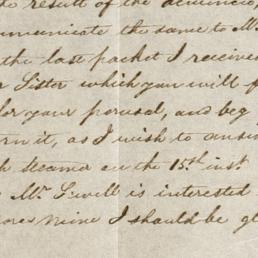 the result of the
municate the same to M
the last packet I receive
Sister which you will f
for your perusal, and beg
urn it, as I wish to answ
h Steamer on the 15th inst.
Mr. Sewell is interested
ores Mine I should be gl